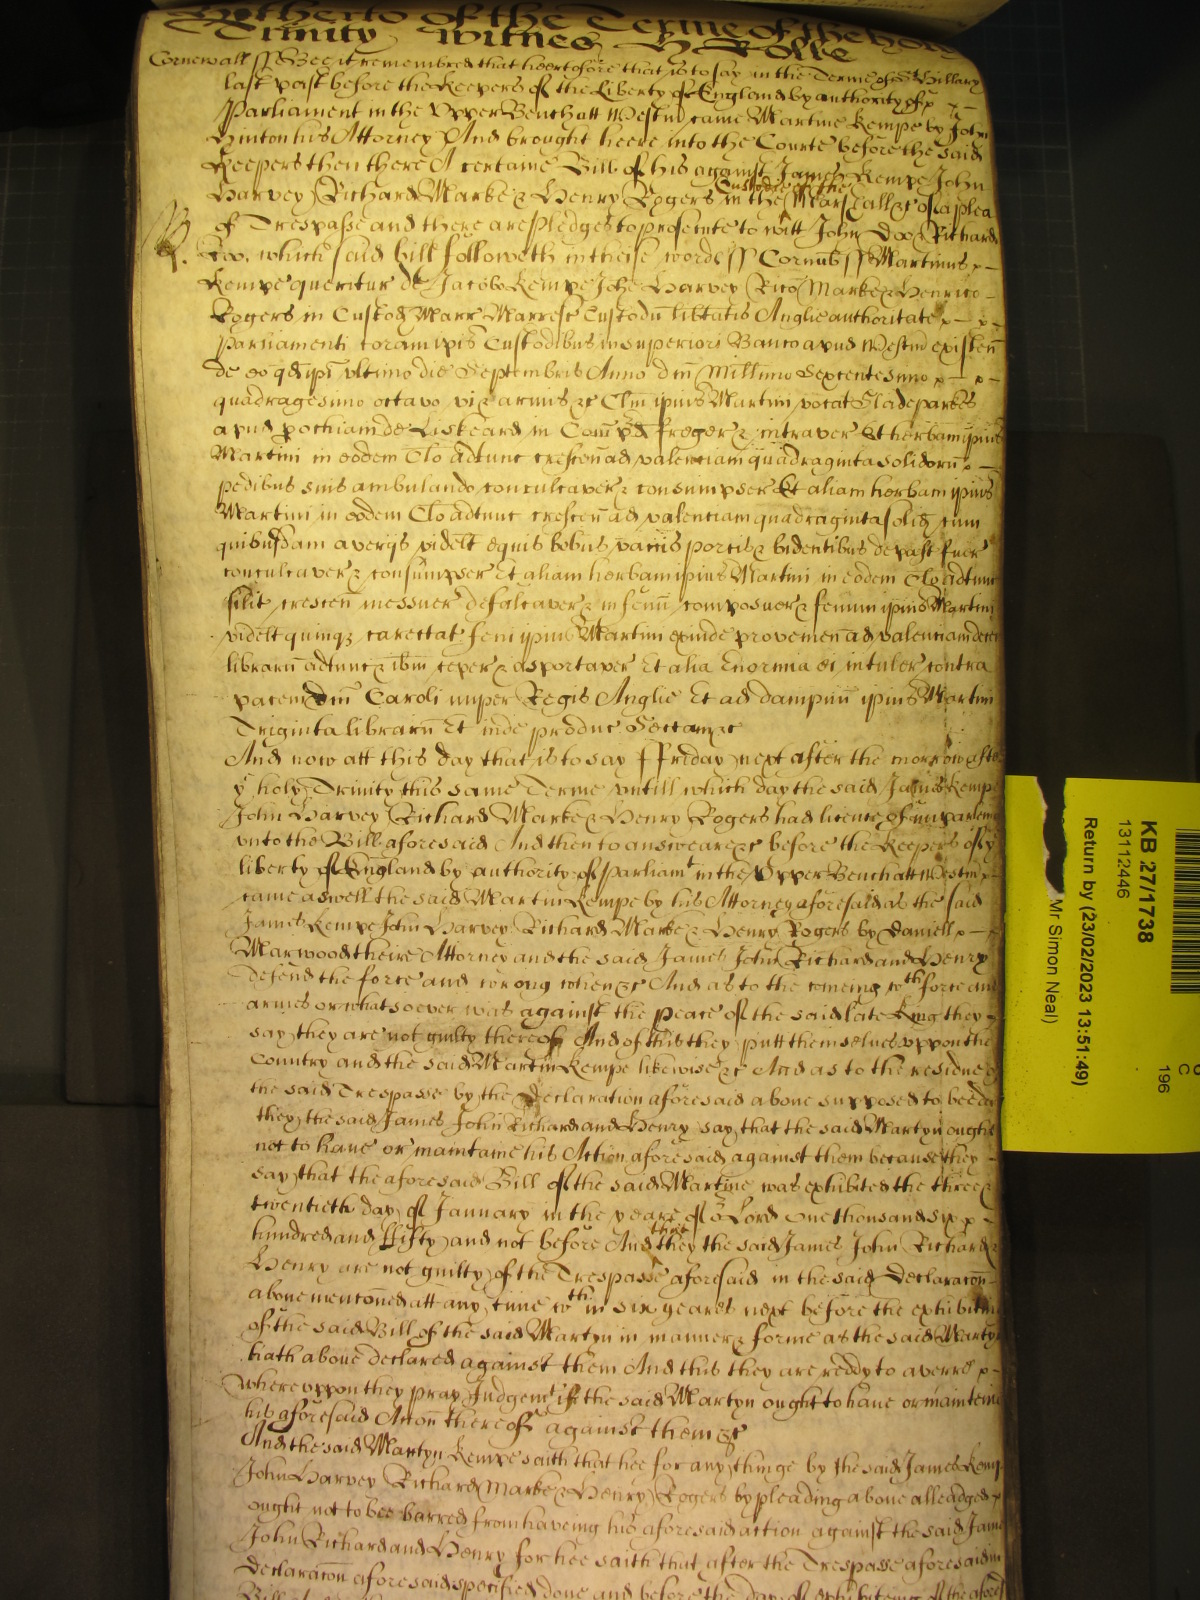 Hitherto of the Terme of the holy
Trinity Witnes H Rolle
Cornewall ss Bee it remembred that heertofore that is to say in the Terme of St Hillary
last past before the Keepers of the Liberty of England by authority of
Parliament in the Upper Bench att Westm came Martine Kempe by John
Hinton his Attorney And brought heere into the Courte before the said
Keepers then there A certaine Bill of his against James Kempe John
Harvey Richard Marke & Henry Rogers in the Custodie of the Marshall &c of a plea
of Trespasse and there are Pledges to prosecute to witt John Doo & Richard
Roo, which said bill followeth in theise words ss Cornub ss Martinus
Kempe queritur de Jacobo Kempe Johe Harvey Rico Marke & Henrico
Rogers in Custod Marr Marresc Custodu libtatis Anglie authoritate
Parliamenti coram ipis Custodibus in superiori Banco apud Westm existen
de eo qd ipi ultimo die Septembris Anno Dni Millimo Sexcentesimo
quadragesimo octavo vi & armis &c Clm ipius Martini vocat Sladeparke
apud pochiam de Liskeard in Com pd freger & intraver Et herbam ipius
Martini in eodem Clo adtunc crescen ad valenciam quadraginta solidoru
pedibus suis ambulando conculcaver & consumpser Et aliam herbam ipius
Martini in eodem Clo adtunc crescen ad valenciam quadraginta solid cum
quibusdam averijs videlt equis bobus vaccis porcis & bidentibus depast fuer
conculcaver & consumpser Et aliam herbam ipius Martini in eodem Clo adtunc
silit crescen messuer defalcaver & in fenu composuer & fenum ipius Martini
videlt quinq carectat feni ipius Martini exinde provenien ad valenciam decem
libraru adtunc & ibm ceper & asportaver Et alia Enormia ei intuler contra
pacem Dni Caroli nuper Regis Anglie Et ad dampnu ipius Martini
Triginta libraru Et inde produc Sectam &c
And now att this day that is to say Friday next after the morrow of the
y holy Trinity this same Terme untill which day the said James Kempe
John Harvey Richard Marke & Henry Rogers had licence of imparlem
unto the Bill aforesaid And then to answeare &c before the Keepers of y
liberty of England by authority of Parliamt in the Upper Bench att Westm
came aswell the said Martin Kempe by his Attorney aforesaid as the said
James Kempe John Harvey Richard Marke & Henry Rogers by Daniell
Marwood theire Attorney and the said James John Richard and Henry
defend the force and wrong when &c And as to the comeing wth force and
armes or whatsoever was against the peace of the said late King they
say they are not guilty thereof And of this they putt themselues uppon the
Country and the said Martin Kempe likewise &c And as to the residue of
the said Trespasse by the Declaration aforesaid aboue supposed to bee don
they the said James John Richard and Henry say that the said Martyn ought
not to haue or maintaine his Action aforesaid against them because they
say that the aforesaid Bill of the said Martine was exhibited the three &
twentieth day of January in the yeare of or Lord One thousand six
hundred and ffifty and not before And that they the said James John Richard &
Henry are not guilty of the Trespasse aforesaid in the said Declaracon
aboue mencioned att any time wthin six yeares next before the exhibiting
of the said Bill of the said Martyn in manner & forme as the said Martyn
hath aboue declared against them And this they are reddy to averre
whereuppon they pray Judgemt if the said Martyn ought to haue or mainteine
his aforesaid Accon thereof against them &c
And the said Martyn Kempe saith that hee for any thinge by the said James Kemp
John Harvey Richard Marke & Henry Rogers by pleading aboue alleadged
ought not to bee barred from haveing his aforesaid action against the said James
John Richard and Henry for hee saith that after the Trespasse aforesaid in
Declaracon aforesaid specified done and before the day of exhibiteing of the afores
KB 27/1738
13112446
Return by (23/02/2023 13:51:49)
Mr Simon Neal)
196